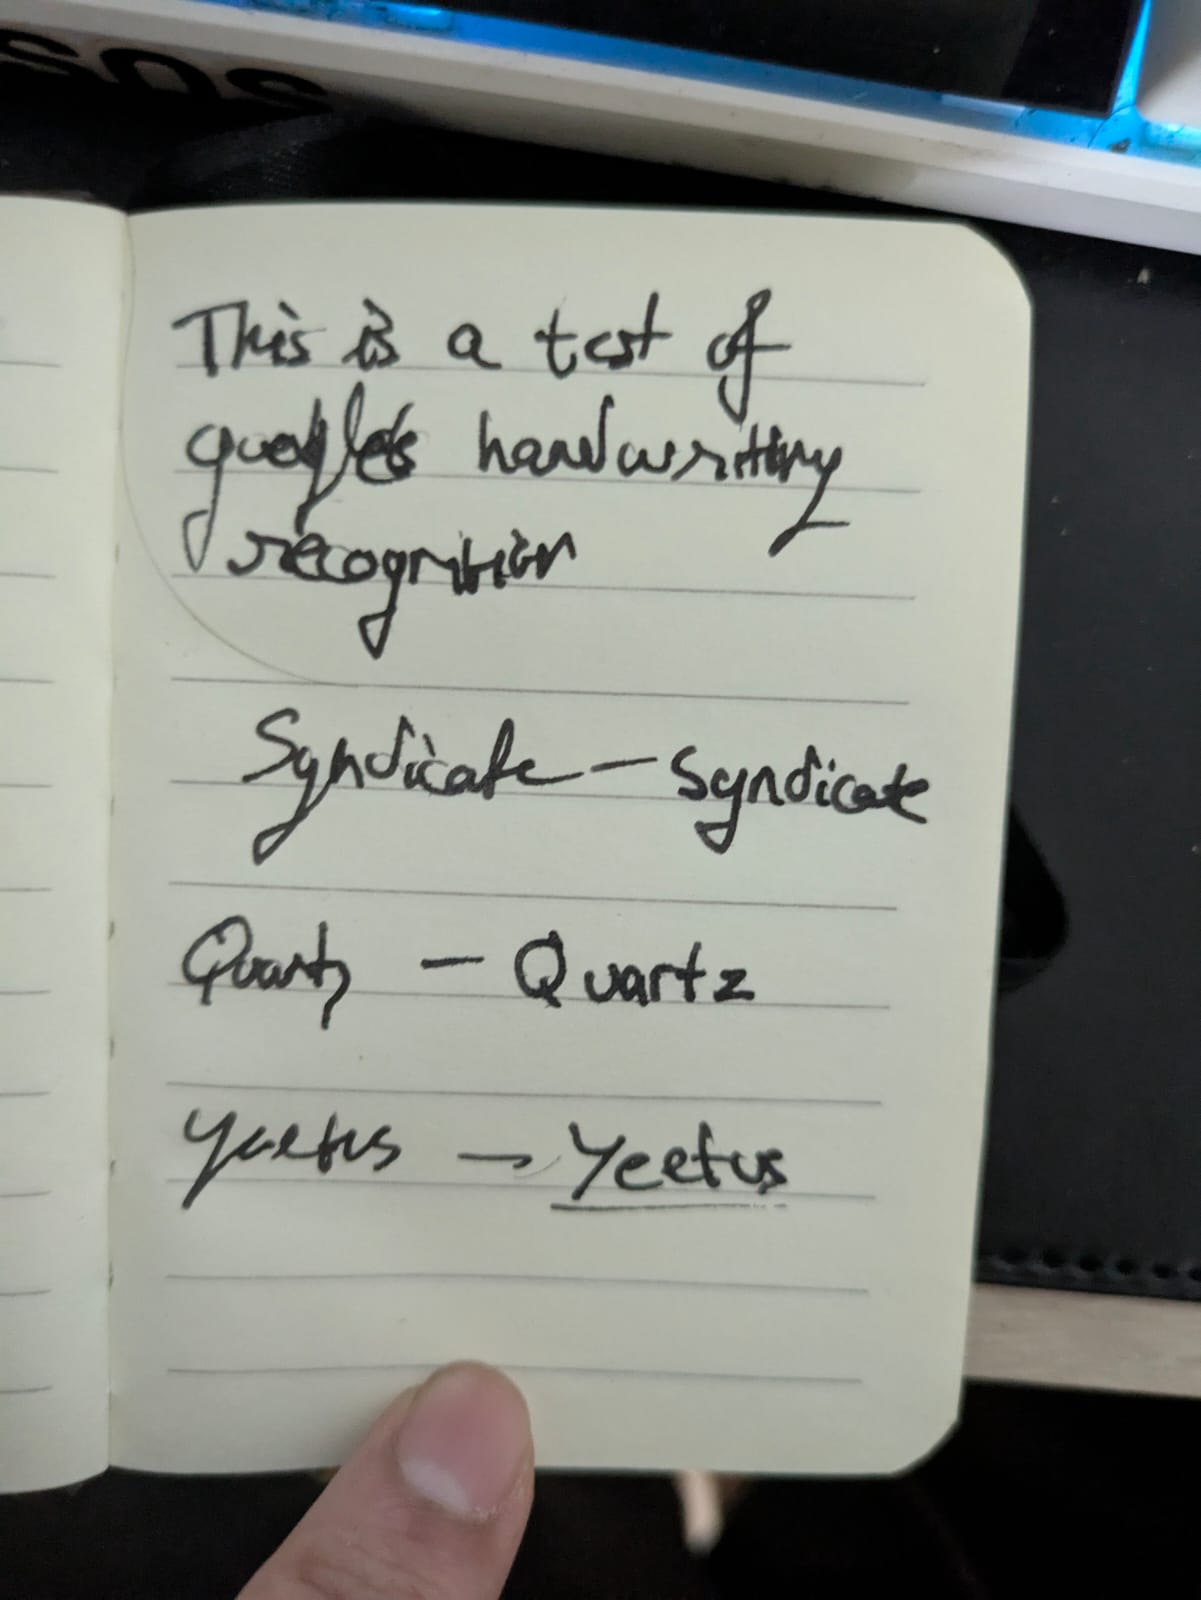 This is a test of
googles handwriting
recognition
Syndicate - Syndicate
Quartz - Quartz
Yeetus - Yeetus